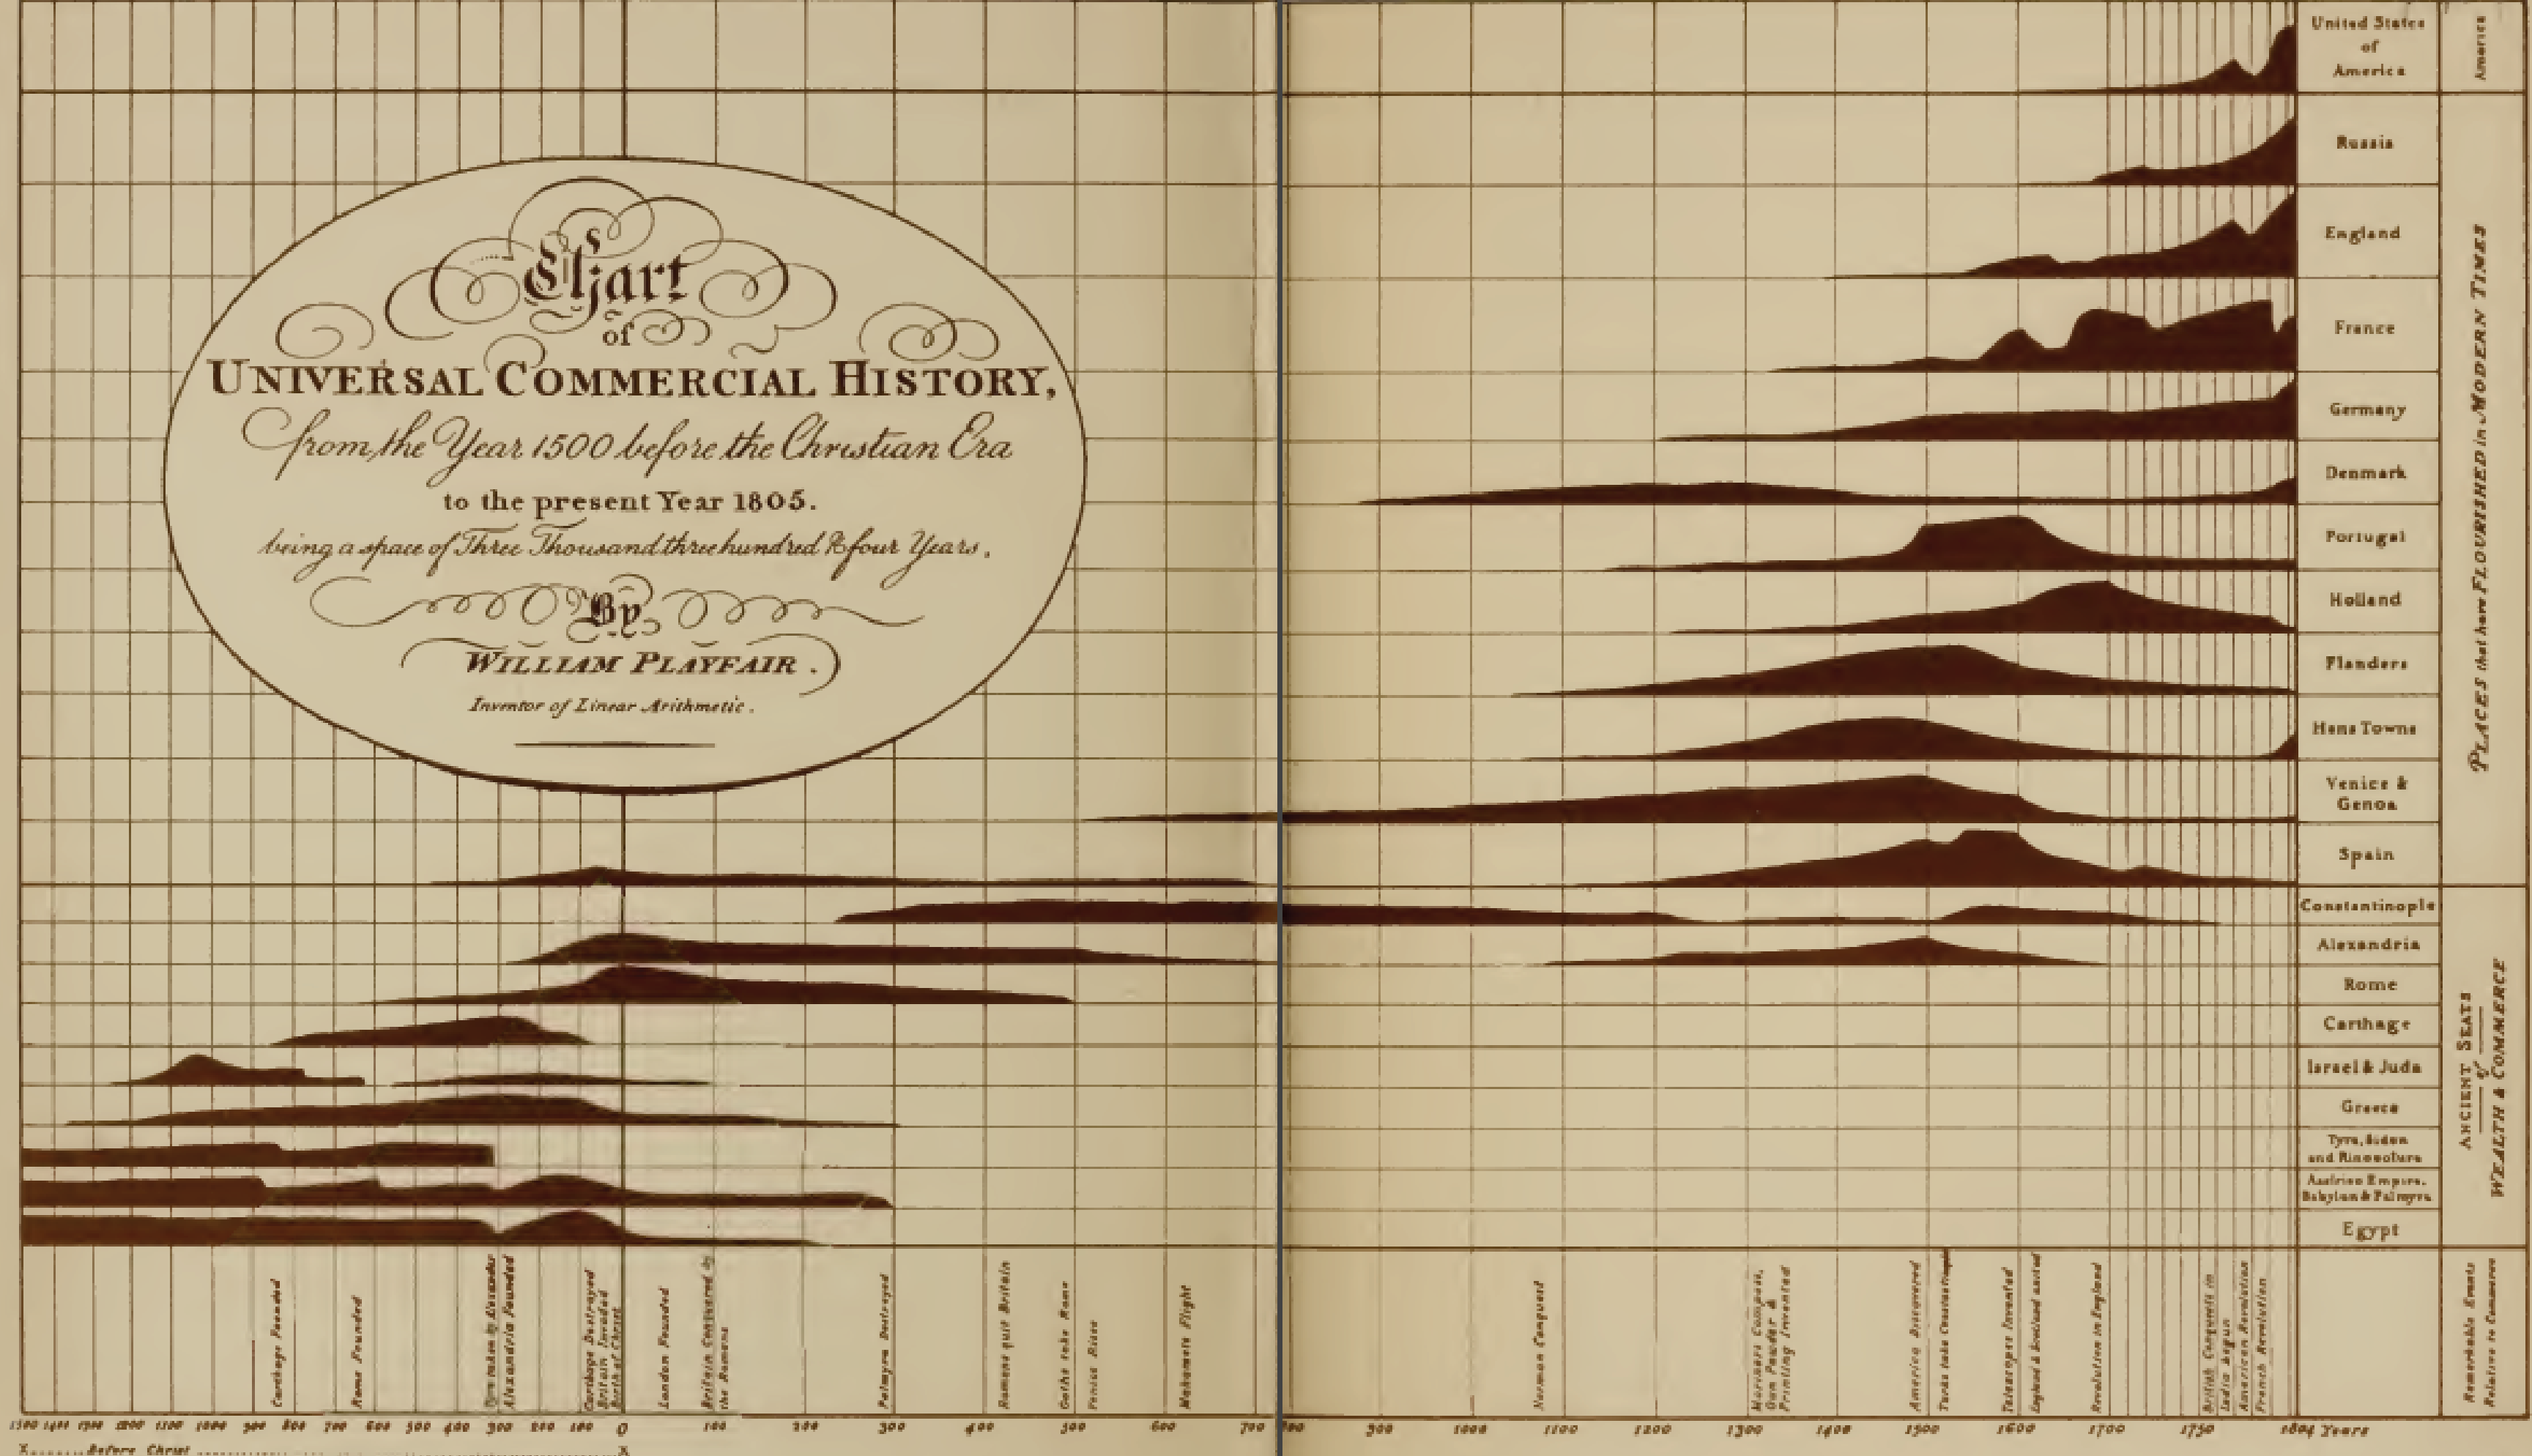 Chart
of
UNIVERSAL COMMERCIAL HISTORY,
from the Year 1500 before the Christian Era
to the present Year 1805.
being a space of Three Thousand three hundred & four Years.
By
WILLIAM PLAYFAIR.
Inventor of Linear Arithmetic.
United States
of
America
Russia
England
France
Germany
Denmark
Portugal
Holland
Flanders
Hans Towns
Venice &
Genoa
Spain
Constantinople
Alexandria
Rome
Carthage
Israel & Juda
Greece
Tyre, Sidon
and
Empire,
Babylon & Palmyra
Egypt
America
PLACES that have FLOURISHED in MODERN TIMES
ANCIENT SEATS
of
WEALTH & COMMERCE
Remarkable Events
Relative to Commerce
Carthage Founded
Rome Founded
Tyre taken by
Alexandria Founded
Carthage Destroyed
Britain Invaded
Birth of Christ
London Founded
Britain Conquered by
the Romans
Palmyra Destroyed
Romans quit Britain
Goths take Rome
Venice Rises
Mahomets Flight
Norman Conquest
Mariners Compass,
Gun Powder &
Printing Invented
America Discovered
Turks take
Telescopes Invented
England & Scotland united
Revolution in England
British Conquests in
India begun
American Revolution
French Revolution
1500 1400 1300 1200 1100 1000 900 800 700 600 500 400 300 200 100 0 100 200 300 400 500 600 700 900 1000 1100 1200 1300 1400 1500 1600 1700 1750 1804 Years
Before Christ